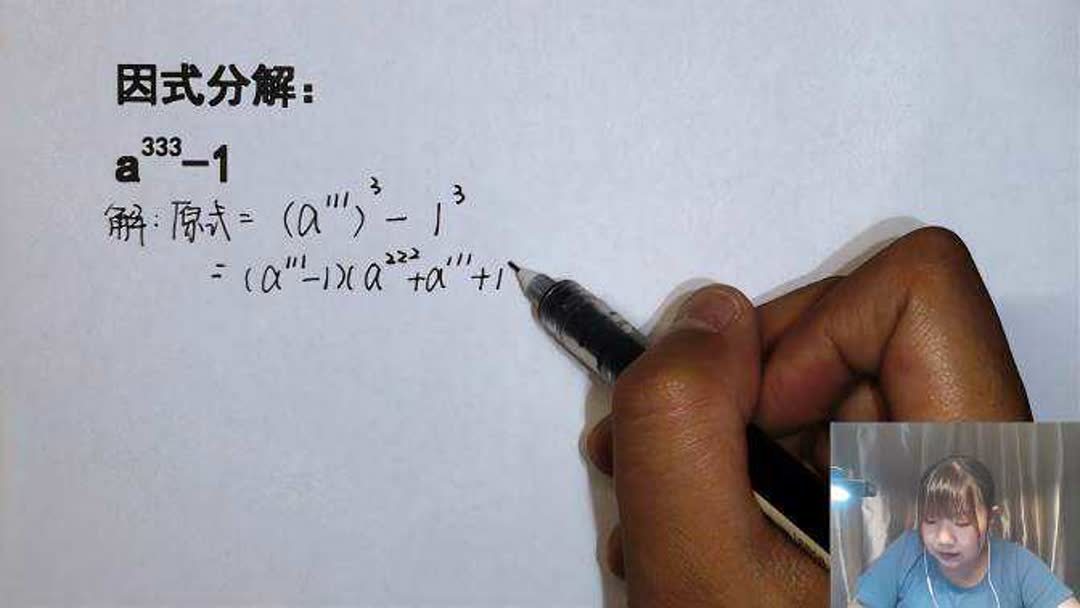 因式分解:
a³³³-1
解:原式=(a¹¹¹)³-1³
=(a¹¹¹-1)(a²²²+a¹¹¹+1